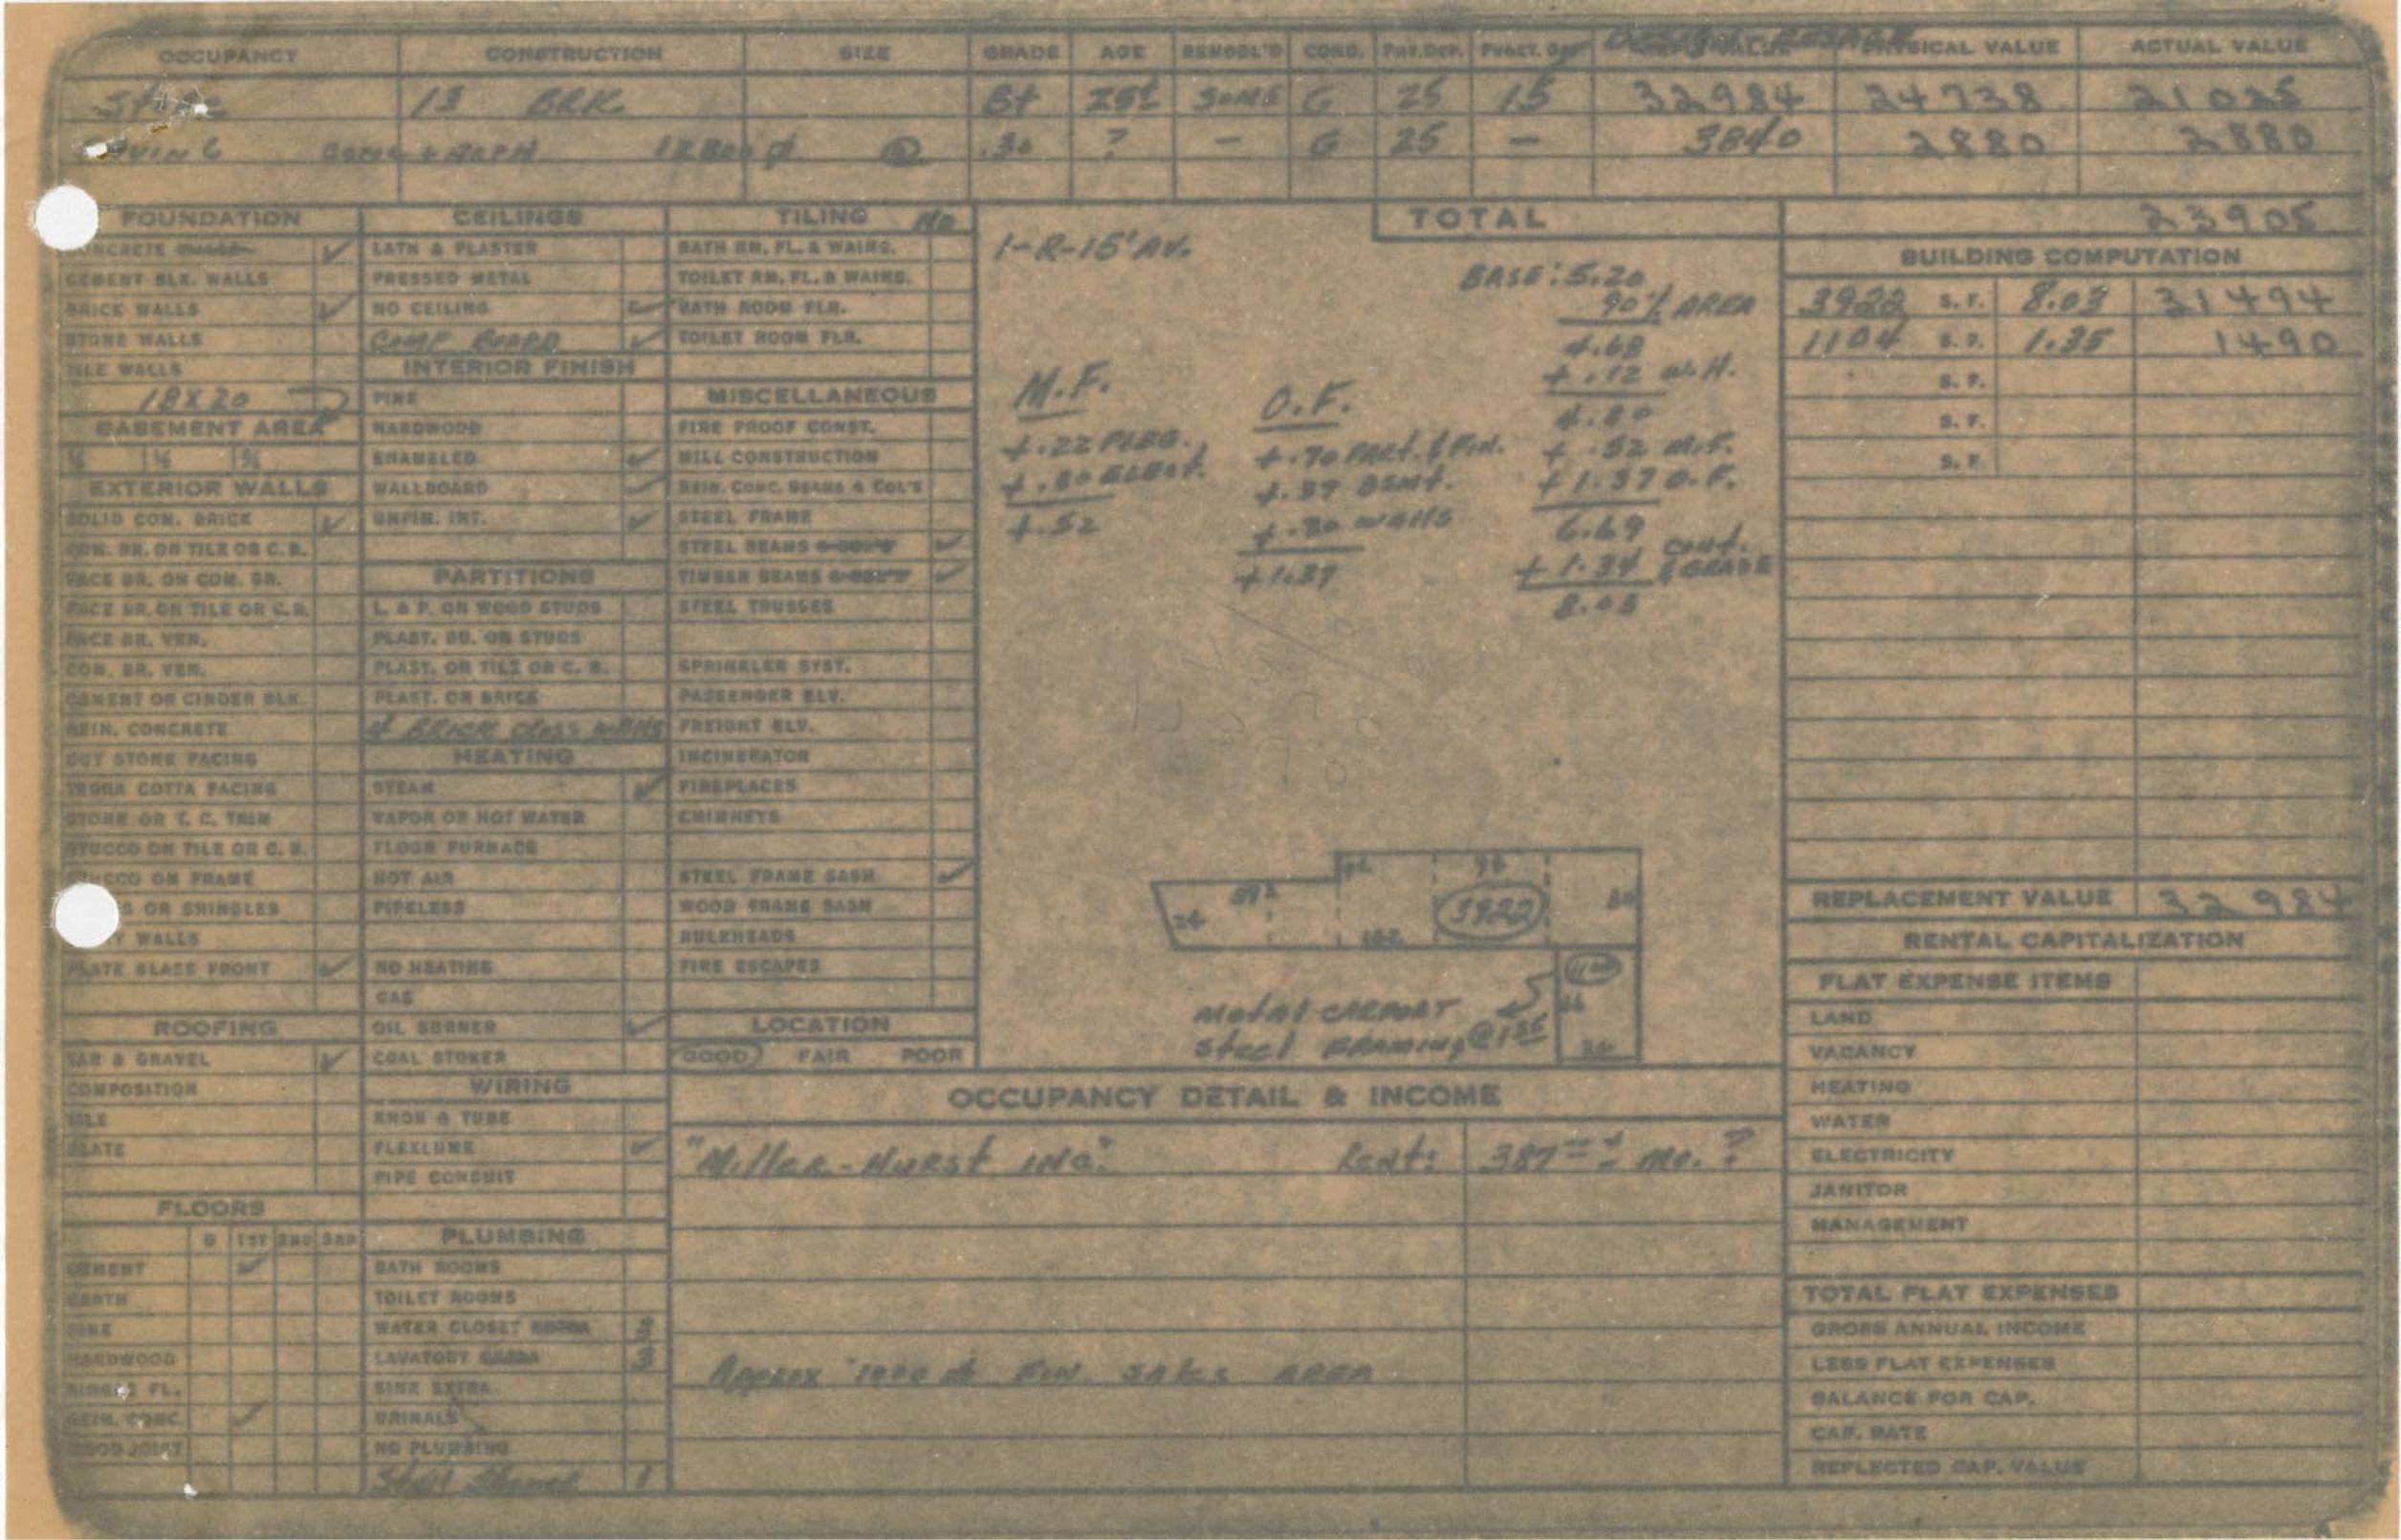 OCCUPANCY CONSTRUCTION SIZE GRADE AGE REMODL'D COND. PHY.DEP. FUNCT. DEP VALUE PHYSICAL VALUE ACTUAL VALUE
Store 1S BRK B+ 25± SOME G 25 15 32984 24738 21025
CONC + ASPH 12800 ф @ .30 ? - G 25 - 3840 2880 2880
TOTAL 23905
FOUNDATION
CONCRETE ✓
CEMENT BLK. WALLS
BRICK WALLS ✓
STONE WALLS
TILE WALLS
18 X 20
BASEMENT AREA
¼ ½ ¾
EXTERIOR WALLS
SOLID COM. BRICK ✓
COM. BR. ON TILE OR C.B.
FACE BR. ON COM. BR.
FACE BR. ON TILE OR C.B.
FACE BR. VEN.
COM. BR. VEN.
CEMENT OR CINDER BLK.
REIN. CONCRETE
CUT STONE FACING
TERRA COTTA FACING
STONE OR T. C. TRIM
STUCCO ON TILE OR C. B.
STUCCO ON FRAME
OR SHINGLES
WALLS
PLATE GLASS FRONT ✓
ROOFING
TAR & GRAVEL ✓
COMPOSITION
TILE
SLATE
FLOORS
B 1ST 2ND 3RD
CEMENT ✓
EARTH
PINE
HARDWOOD
SINGLE FL.
REIN. CONC. ✓
WOOD JOIST
CEILINGS
LATH & PLASTER
PRESSED METAL
NO CEILING ✓
COMP BOARD ✓
INTERIOR FINISH
PINE
HARDWOOD
ENAMELED ✓
WALLBOARD ✓
UNFIN. INT. ✓
PARTITIONS
L. & P. ON WOOD STUDS
PLAST. BD. ON STUDS
PLAST. ON TILE OR C. B.
PLAST. ON BRICK
4 BRICK CROSS WALLS
HEATING
STEAM ✓
VAPOR OR HOT WATER
FLOOR FURNACE
HOT AIR
PIPELESS
NO HEATING
GAS
OIL BURNER ✓
COAL STOKER
WIRING
KNOB & TUBE
FLEXLUME ✓
PIPE CONDUIT
PLUMBING
BATH ROOMS
TOILET ROOMS
WATER CLOSET EXTRA 3
LAVATORY EXTRA 3
SINK EXTRA
URINALS
NO PLUMBING
Stall Shower 1
TILING No
BATH RM. FL. & WAINS.
TOILET RM. FL. & WAINS.
BATH ROOM FLR.
TOILET ROOM FLR.
MISCELLANEOUS
FIRE PROOF CONST.
MILL CONSTRUCTION
REIN. CONC. BEAMS & COL'S
STEEL FRAME
STEEL BEAMS & COL'S ✓
TIMBER BEAMS & COL'S ✓
STEEL TRUSSES
SPRINKLER SYST.
PASSENGER ELV.
FREIGHT ELV.
INCINERATOR
FIREPLACES
CHIMNEYS
STEEL FRAME SASH ✓
WOOD FRAME SASH
BULKHEADS
FIRE ESCAPES
LOCATION
GOOD FAIR POOR
1-R-15' AV.
M.F.
+.22 PLBG.
+.30 ELECT.
+.52
O.F.
+.70 PART. & FIN.
+.37 BSMT.
+.30 WALLS
+1.37
BASE: 5.20
90% AREA
4.68
+ .12 W.H.
4.80
+ .52 M.F.
+ 1.37 O.F.
6.69
+ 1.34 CONT. & GRADE
8.03
24 96 3922 30
metal CARPORT
Steel FRAMING @ 1.35
OCCUPANCY DETAIL & INCOME
"Miller-Hurst INC." Rent: mo. ?
Approx 1000 ф Fin. Sales AREA
BUILDING COMPUTATION
3922 S. F. 8.03 31494
1104 S. F. 1.35 1490
S. F.
S. F.
S. F.
REPLACEMENT VALUE 32984
RENTAL CAPITALIZATION
FLAT EXPENSE ITEMS
LAND
VACANCY
HEATING
WATER
ELECTRICITY
JANITOR
MANAGEMENT
TOTAL FLAT EXPENSES
GROSS ANNUAL INCOME
LESS FLAT EXPENSES
BALANCE FOR CAP.
CAP. RATE
REFLECTED CAP. VALUE